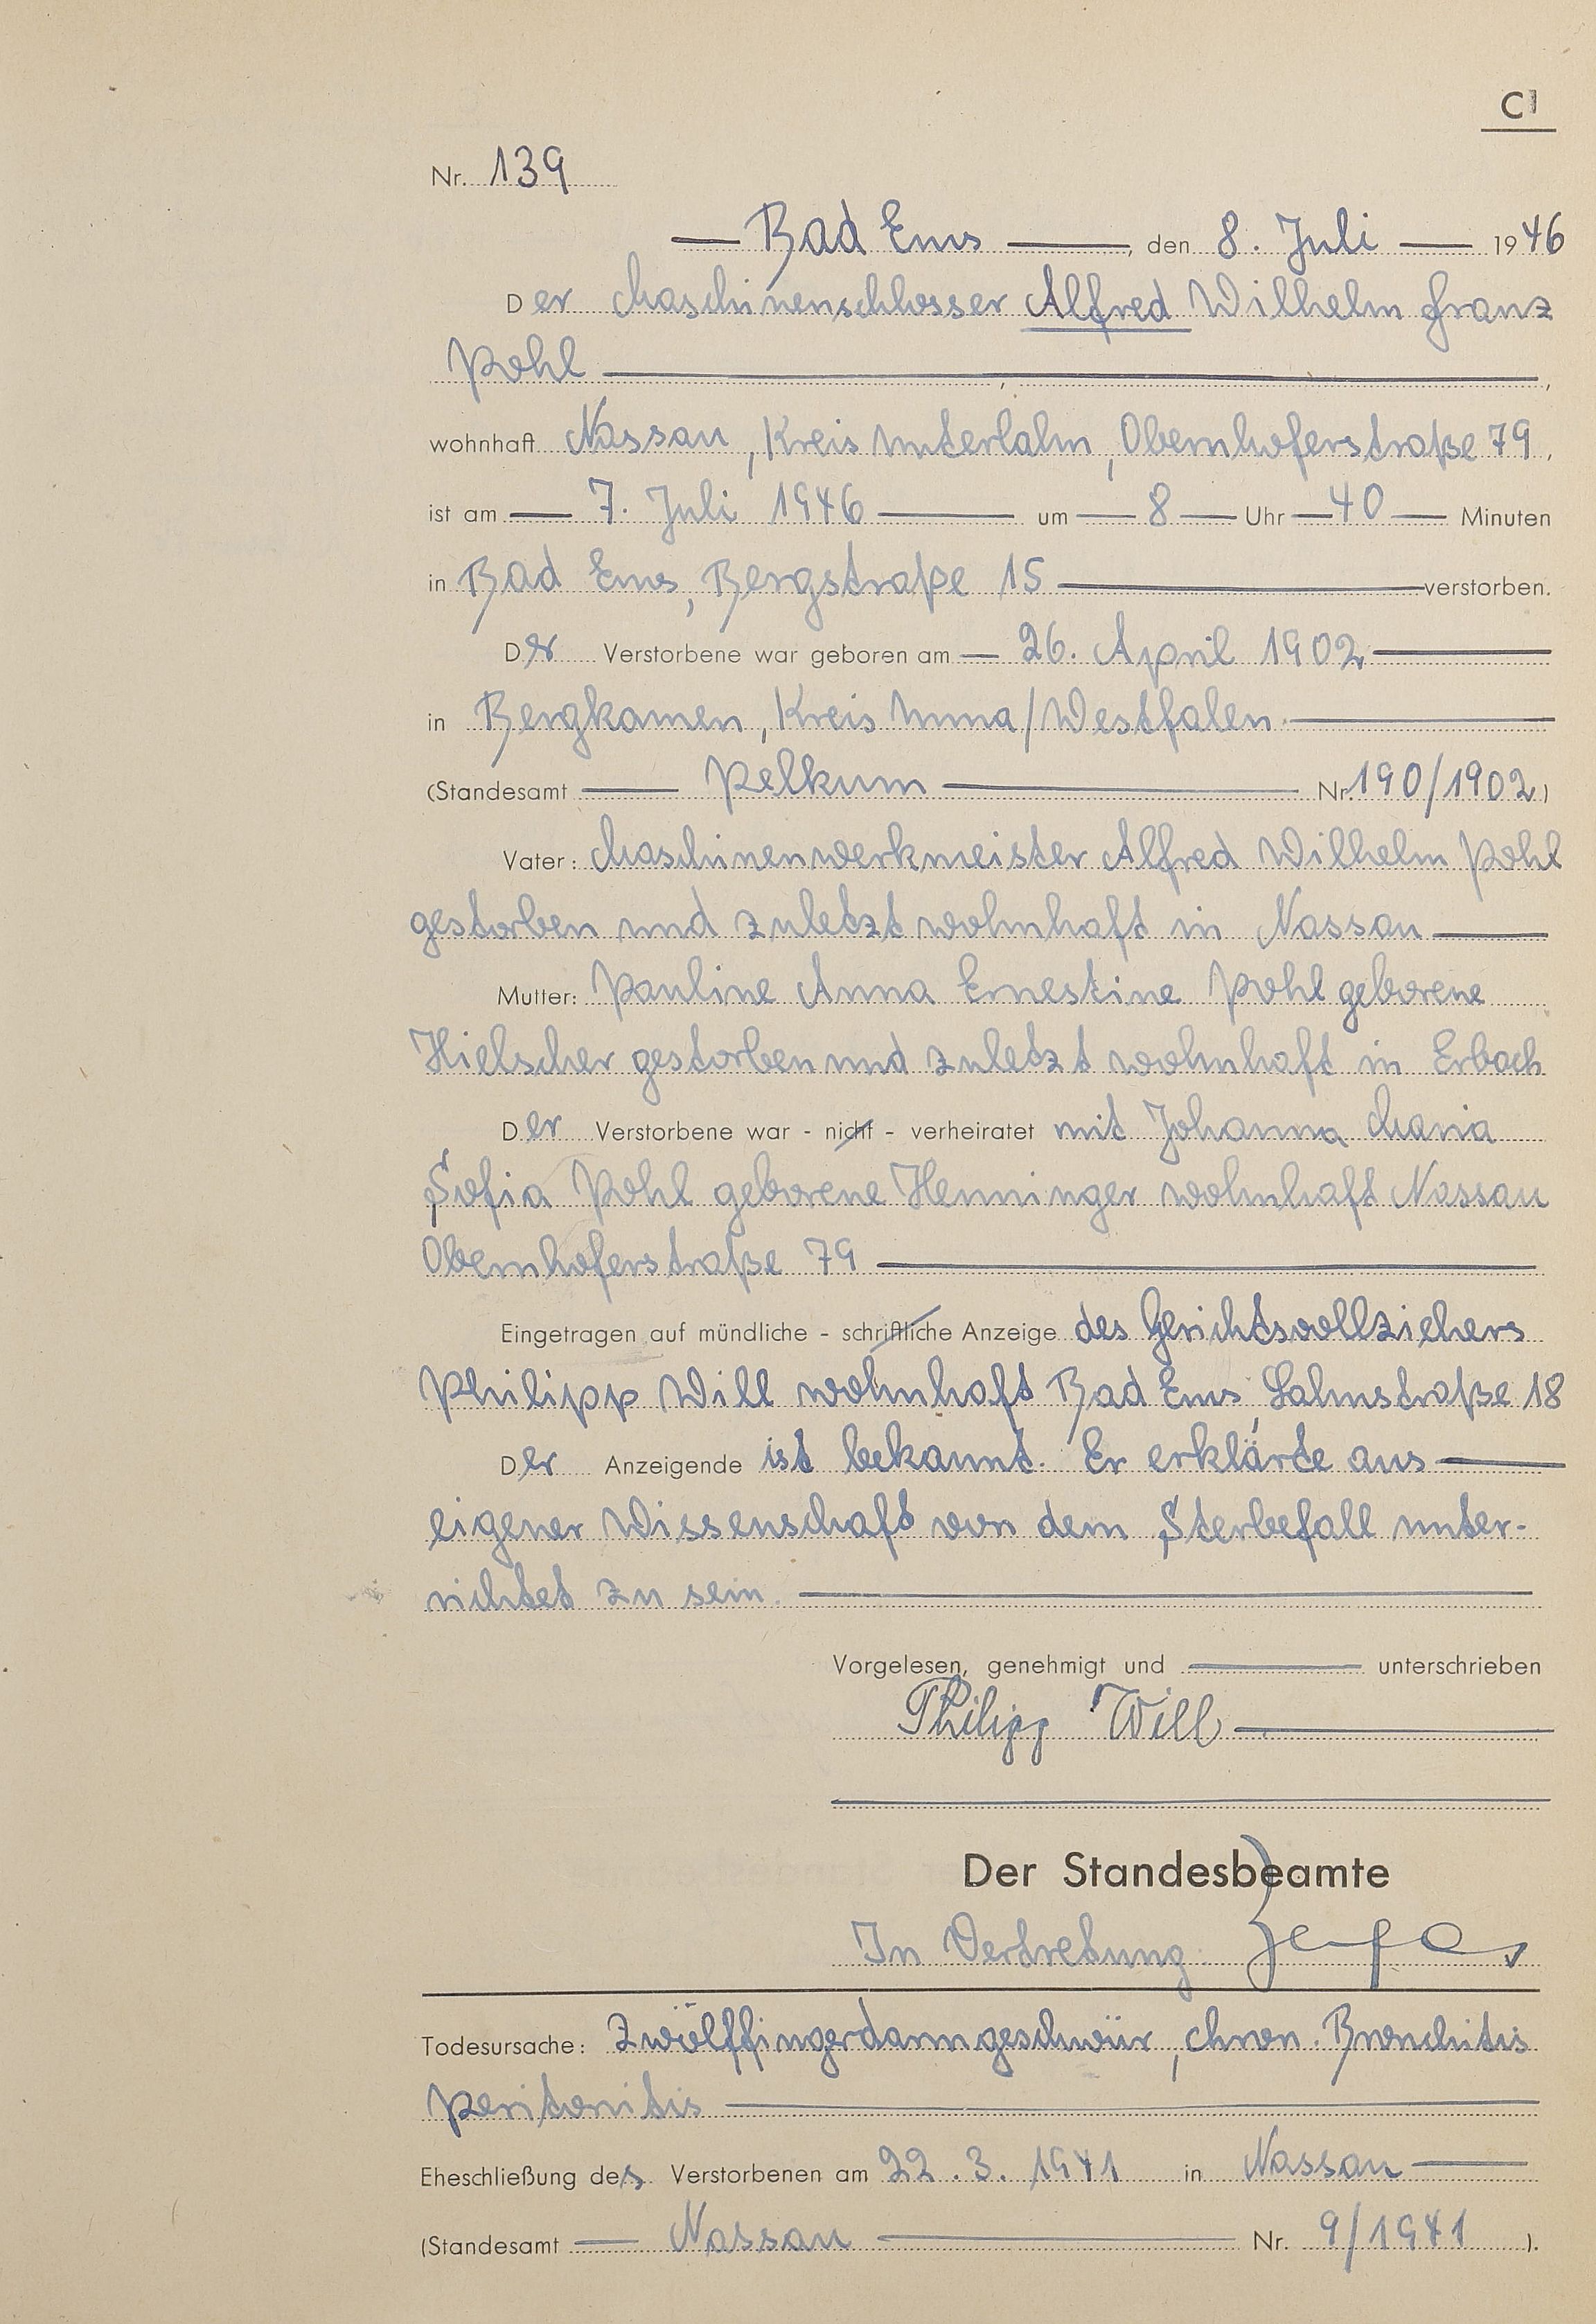 C1
Nr. 139
Bad Ems, den 8. Juli 1946
Der Maschinenschlosser Alfred Wilhelm Franz
Pohl,
wohnhaft Nassau, Kreis Unterlahn, Obernhoferstraße 79,
ist am 7. Juli 1946 um 8 Uhr 40 Minuten
in Bad Ems, Bergstraße 15 verstorben.
Der Verstorbene war geboren am 26. April 1902
in Bergkamen, Kreis Unna/Westfalen
(Standesamt Pelkum Nr. 190/1902)
Vater: Maschinenwerkmeister Alfred Wilhelm Pohl
gestorben und zuletzt wohnhaft in Nassau
Mutter: Pauline Anna Ernestine Pohl geborene
Hielscher gestorben und zuletzt wohnhaft in Erbach
Der Verstorbene war - nicht - verheiratet mit Johanna Maria
Sofia Pohl geborene Henninger wohnhaft Nassau
Obernhoferstraße 79
Eingetragen auf mündliche - schriftliche Anzeige des Gerichtsvollziehers
Philipp Will wohnhaft Bad Ems, Lahnstraße 18
Der Anzeigende ist bekannt. Er erklärte aus
eigener Wissenschaft von dem Sterbefall unter-
richtet zu sein.
Vorgelesen, genehmigt und unterschrieben
Philipp Will
Der Standesbeamte
In Vertretung
Todesursache: Zwölffingerdarmgeschwür, chron. Bronchitis
Peritonitis
Eheschließung des Verstorbenen am 22.3.1941 in Nassau
(Standesamt Nassau Nr. 9/1941).